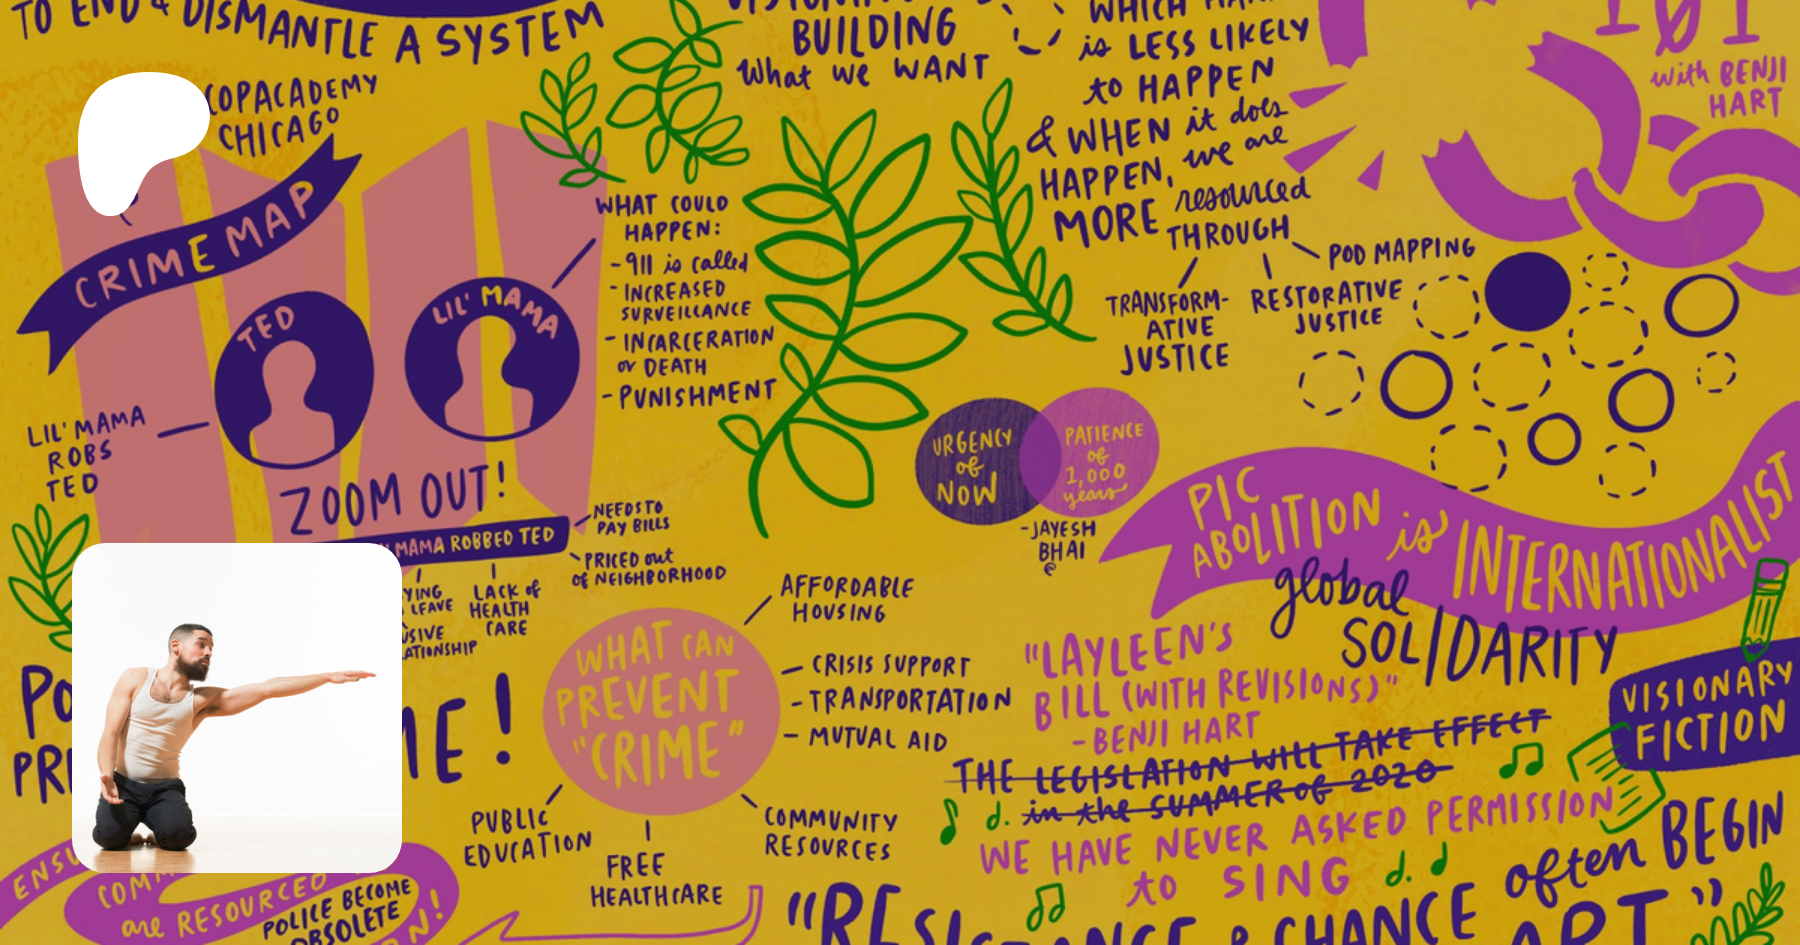 TO END & DISMANTLE A SYSTEM
COPACADEMY
CHICAGO
CRIME MAP
TED
LIL' MAMA
LIL' MAMA
ROBS
TED
WHAT COULD
HAPPEN:
- 911 is called
- INCREASED
SURVEILLANCE
- INCARCERATION
or DEATH
- PUNISHMENT
ZOOM OUT!
MAMA ROBBED TED
NEEDS TO
PAY BILLS
PRICED out
of NEIGHBORHOOD
LACK of
HEALTH
CARE
LEAVE
BUILDING
What we WANT
WHICH
is LESS LIKELY
to HAPPEN
& WHEN it does
HAPPEN, we are
MORE resourced
THROUGH
TRANSFORM-
ATIVE
JUSTICE
RESTORATIVE
JUSTICE
POD MAPPING
101
with BENJI
HART
URGENCY
of
NOW
PATIENCE
of
1,000
years
-JAYESH
BHAI
PIC
ABOLITION is INTERNATIONALIST
global
SOLIDARITY
WHAT CAN
PREVENT
"CRIME"
AFFORDABLE
HOUSING
- CRISIS SUPPORT
- TRANSPORTATION
- MUTUAL AID
COMMUNITY
RESOURCES
FREE
HEALTHCARE
PUBLIC
EDUCATION
"LAYLEEN'S
BILL (WITH REVISIONS)"
-BENJI HART
THE LEGISLATION WILL TAKE EFFECT
in the SUMMER OF 2020
WE HAVE NEVER ASKED PERMISSION
to SING
VISIONARY
FICTION
"RESISTANCE & CHANGE often BEGIN
ART"
are RESOURCED
POLICE BECOME
OBSOLETE